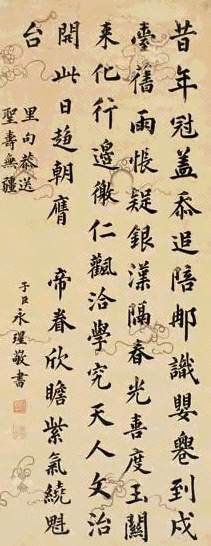 昔年冠蓋忝追陪那識嬰到戍
臺舊雨悵疑銀漢隔春光喜度玉關
來化行邊徼仁觀洽學究天人文治
開此日趨朝膺 帝眷欣瞻紫氣繞魁
台
里向恭送
聖壽無疆
子臣永瑆敬書